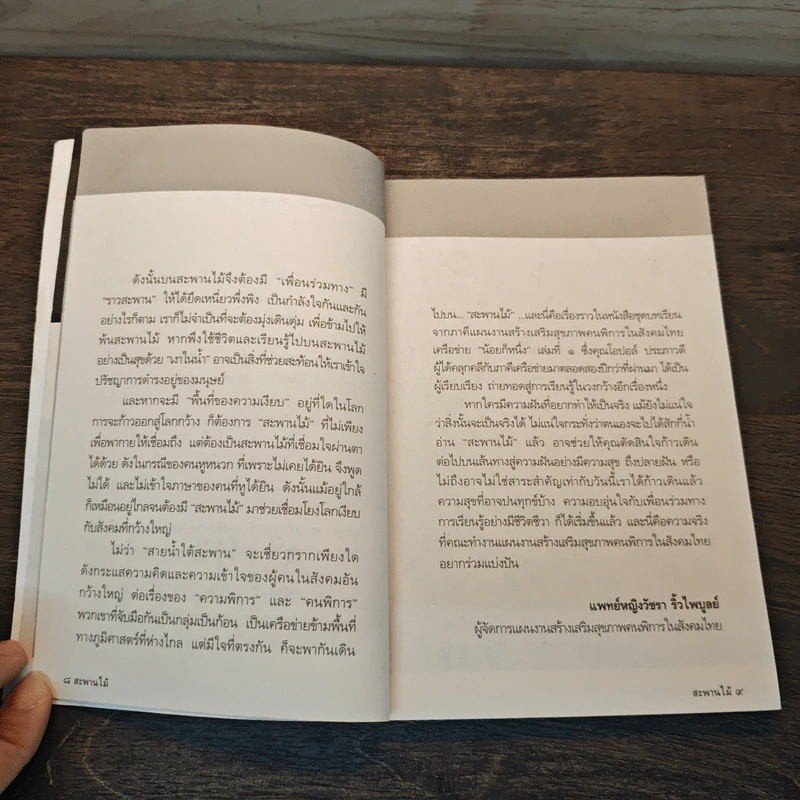 ดังนั้นบนสะพานไม้จึงต้องมี “เพื่อนร่วมทาง” มี
“ราวสะพาน” ให้ได้ยึดเหนี่ยวพึ่งพิง เป็นกำลังใจกันและกัน
อย่างไรก็ตาม เราก็ไม่จำเป็นที่จะต้องมุ่งเดินดุ่ม เพื่อข้ามไปให้
พ้นสะพานไม้ หากพึงใช้ชีวิตและเรียนรู้ไปบนสะพานไม้
อย่างเป็นสุขด้วย “เงาในน้ำ” อาจเป็นสิ่งที่ช่วยสะท้อนให้เราเข้าใจ
ปรัชญาการดำรงอยู่ของมนุษย์
และหากจะมี “พื้นที่ของความเงียบ” อยู่ที่ใดในโลก
การจะก้าวออกสู่โลกกว้าง ก็ต้องการ “สะพานไม้” ที่ไม่เพียง
เพื่อพากายให้เชื่อมถึง แต่ต้องเป็นสะพานไม้ที่เชื่อมใจผ่านตา
ได้ด้วย ดังในกรณีของคนหูหนวก ที่เพราะไม่เคยได้ยิน จึงพูด
ไม่ได้ และไม่เข้าใจภาษาของคนที่หูได้ยิน ดังนั้นแม้อยู่ใกล้
ก็เหมือนอยู่ไกลจนต้องมี “สะพานไม้” มาช่วยเชื่อมโยงโลกเงียบ
กับสังคมที่กว้างใหญ่
ไม่ว่า “สายน้ำใต้สะพาน” จะเชี่ยวกรากเพียงใด
ดังกระแสความคิดและความเข้าใจของผู้คนในสังคมอัน
กว้างใหญ่ ต่อเรื่องของ “ความพิการ” และ “คนพิการ”
พวกเขาที่จับมือกันเป็นกลุ่มเป็นก้อน เป็นเครือข่ายข้ามพื้นที่
ทางภูมิศาสตร์ที่ห่างไกล แต่มีใจที่ตรงกัน ก็จะพากันเดิน
๘ สะพานไม้
ไปบน... “สะพานไม้” ...และนี่คือเรื่องราวในหนังสือชุดบทเรียน
จากภาคีแผนงานสร้างเสริมสุขภาพคนพิการในสังคมไทย
เครือข่าย “น้อยก็หนึ่ง” เล่มที่ ๑ ซึ่งคุณโอปอล์ ประภาวดี
ผู้ได้คลุกคลีกับภาคีเครือข่ายมาตลอดสองปีกว่าที่ผ่านมา ได้เป็น
ผู้เรียบเรียง ถ่ายทอดสู่การเรียนรู้ในวงกว้างอีกเรื่องหนึ่ง
หากใครมีความฝันที่อยากทำให้เป็นจริง แม้ยังไม่แน่ใจ
ว่าสิ่งนั้นจะเป็นจริงได้ ไม่แน่ใจกระทั่งว่าตนเองจะไปได้สักกี่น้ำ
อ่าน “สะพานไม้” แล้ว อาจช่วยให้คุณตัดสินใจก้าวเดิน
ต่อไปบนเส้นทางสู่ความฝันอย่างมีความสุข ถึงปลายฝัน หรือ
ไม่ถึงอาจไม่ใช่สาระสำคัญเท่ากับวันนี้เราได้ก้าวเดินแล้ว
ความสุขที่อาจปนทุกข์บ้าง ความอบอุ่นใจกับเพื่อนร่วมทาง
การเรียนรู้อย่างมีชีวิตชีวา ก็ได้เริ่มขึ้นแล้ว และนี่คือความจริง
ที่คณะทำงานแผนงานสร้างเสริมสุขภาพคนพิการในสังคมไทย
อยากร่วมแบ่งปัน
แพทย์หญิงวัชรา ริ้วไพบูลย์
ผู้จัดการแผนงานสร้างเสริมสุขภาพคนพิการในสังคมไทย
สะพานไม้ ๙